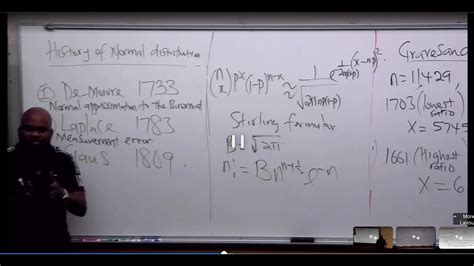 History of Normal distribution
① De-Moivre 1733
Normal approximation to the Binomial
Laplace 1783
Measurement error
Gauss 1809.
(n x) p^x (1-p)^{n-x} ≈ 1/√(2πnp(1-p)) e^{-1/(2np(1-p)) (x-np)²}
Stirling formular
√2π
n! = Bn^{n+½} e^{-n}
n = 11429
1703 (lowest
ratio)
X = 5745
1661 (Highest
ratio)
X = 6